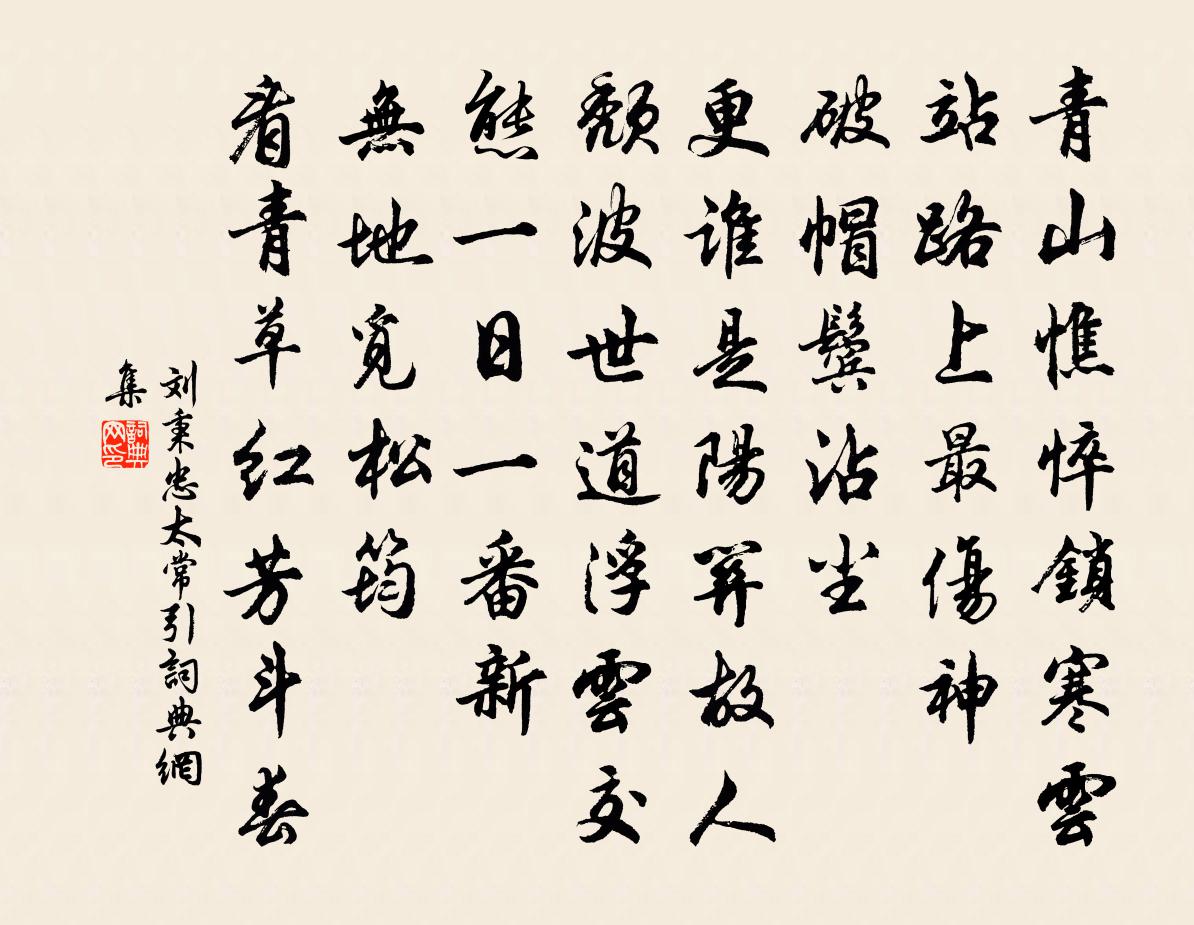 青山憔悴鎖寒雲
站路上最傷神
破帽鬢沾尘
更誰是陽関故人
頹波世道浮雲交
態一日一番新
無地覓松筠
看青草红芳斗春
刘秉忠太常引詞典網
集
詞典
网印